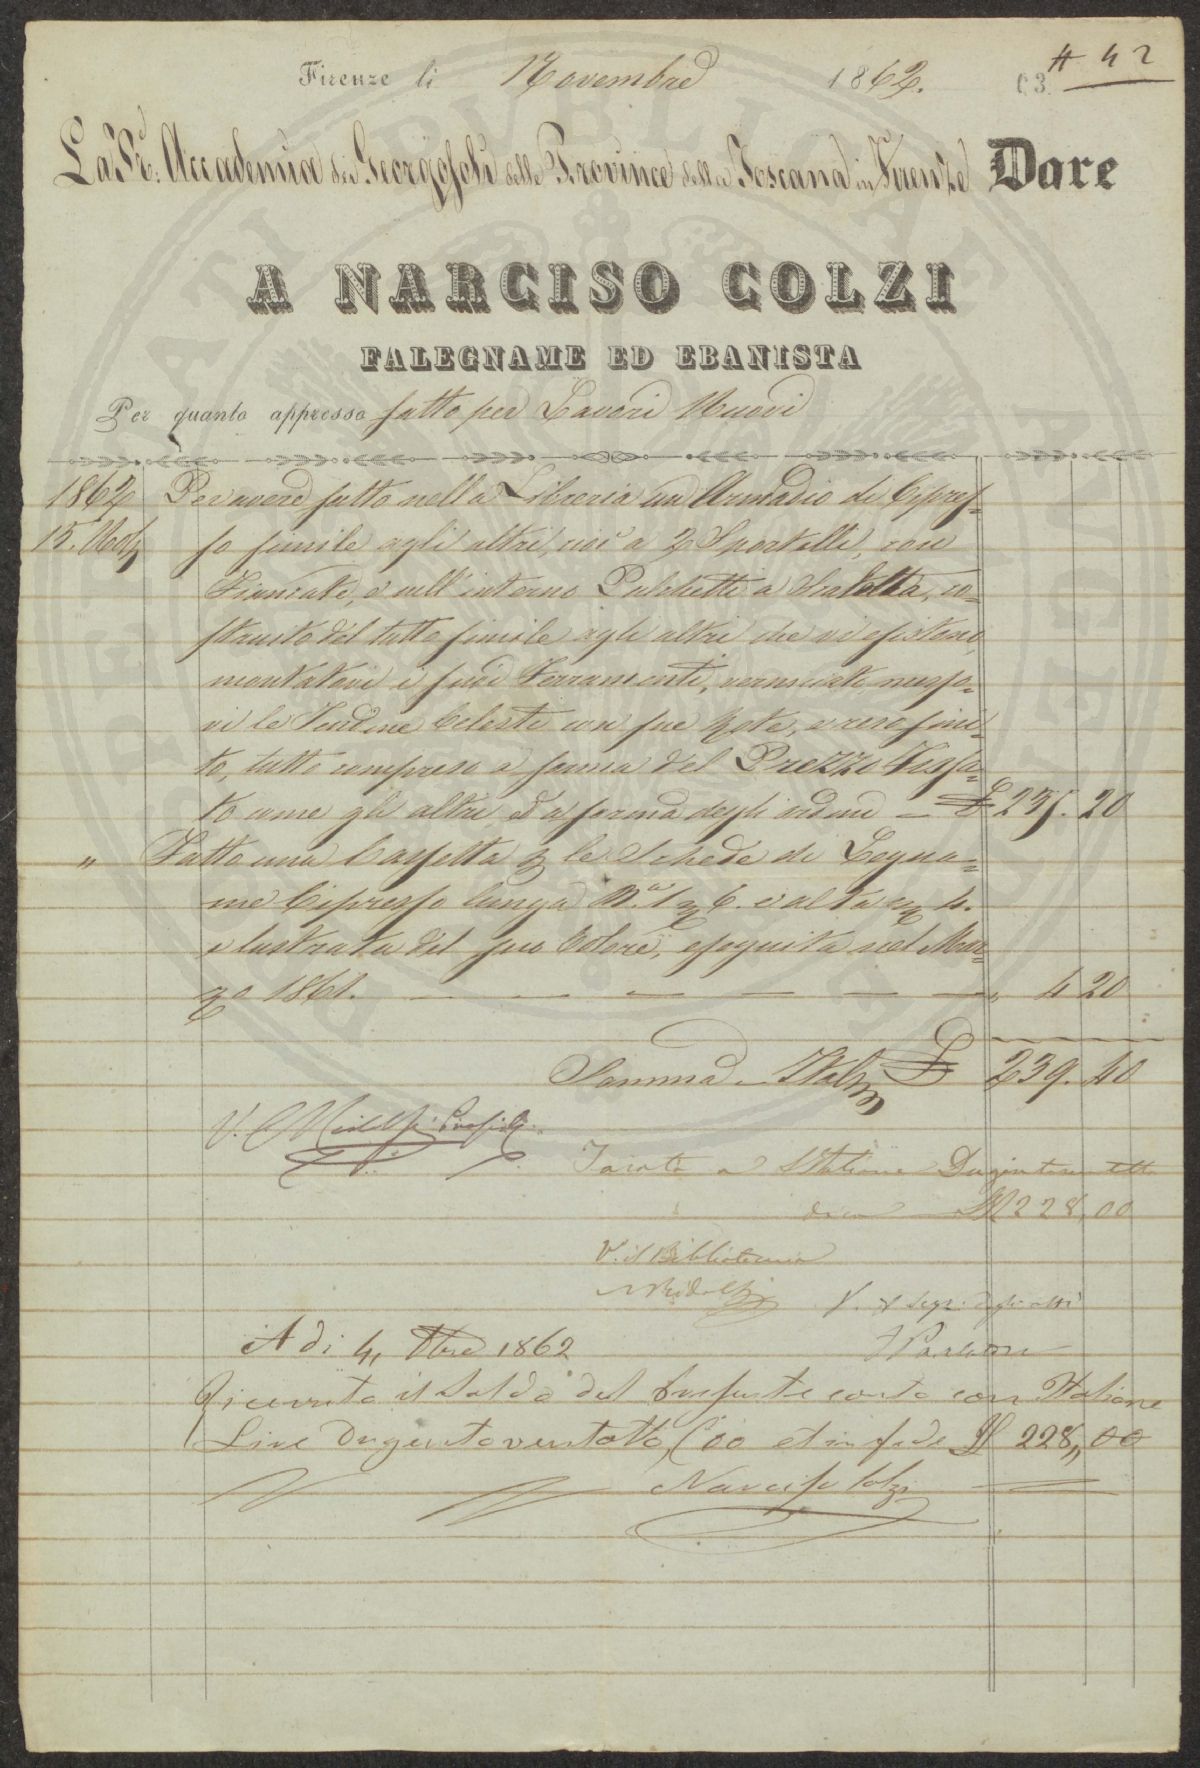 42
Firenze li Novembre 1862.
La R. Accademia dei Georgofili delle Provincie della Toscana in Firenze Dare
A NARCISO COLZI
FALEGNAME ED EBANISTA
Per quanto appresso fatto per Lavori Nuovi
1862 Per avere fatto nella Libreria un Armadio di Cipres-
15. so simile agli altri, cioè a 2 Sportelli, con
Fiancate, e nell'interno Palchetti a Scaletta, co-
struito del tutto simile agli altri che vi esistono,
montatovi i suoi Ferramenti, verniciato messo-
vi le Tendine Celesti con sue Aste, e reso fini-
to, tutto compreso a forma del Prezzo Fissa-
to come gli altri ed a forma degli ordini — £ 235. 20
" Fatto una Cassetta p le Schede di Legna-
me Cipresso lunga B.a 1 e 6. e alta 4.
e lustrata del suo Colore, eseguita nel Mar-
zo 1861. — — — — — — " 4 20
Somma Ital £ 239. 40
V. C. Ridolfi Presid.
Tarato a Italiane Dugentoventotto
dico 228,00
V. il Bibliotecario
Ridolfi V. Il Segr. degli atti
A di 4, Xbre 1862
Ricevuto il Saldo del presente conto con Italiane
Lire Dugentoventotto, /00 et in fede £ 228,,00
Narciso Colzi